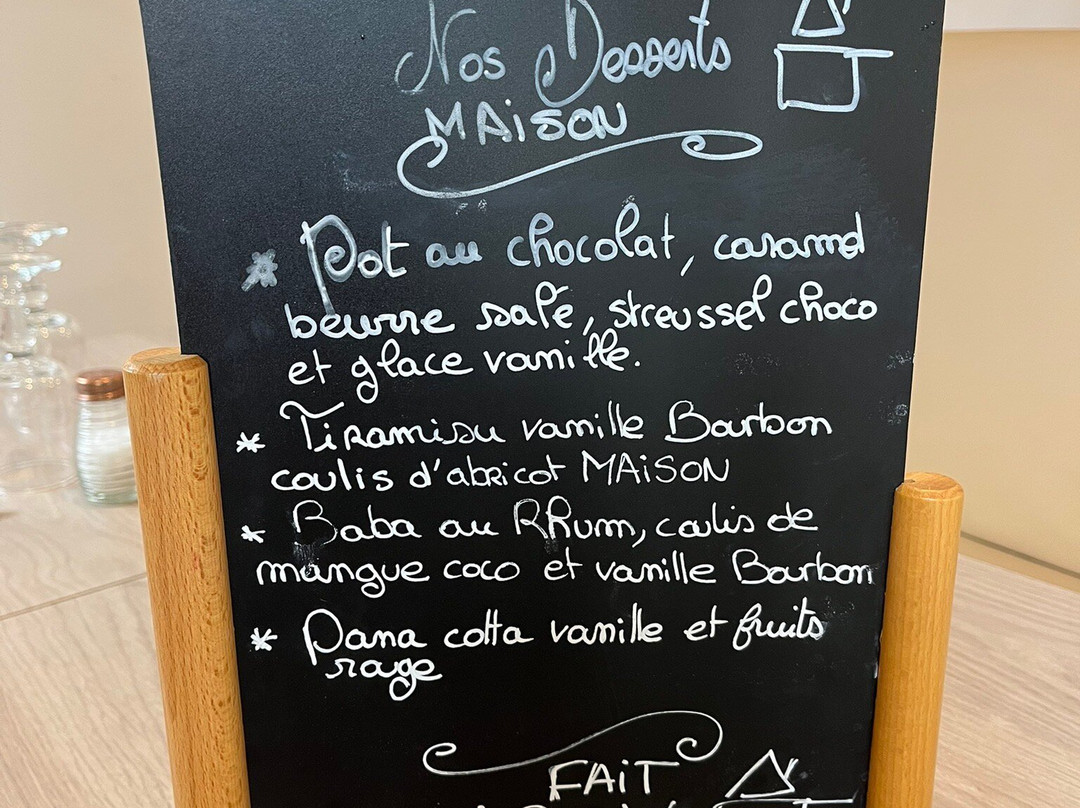 Nos Desserts
MAiSON
* Pot au chocolat, caramel
beurre salé, streussel choco
et glace vanille.
* Tiramisu vanille Bourbon
coulis d'abricot MAiSON
* Baba au Rhum, coulis de
mangue coco et vanille Bourbon
* Pana cotta vanille et fruits
rouge
FAiT